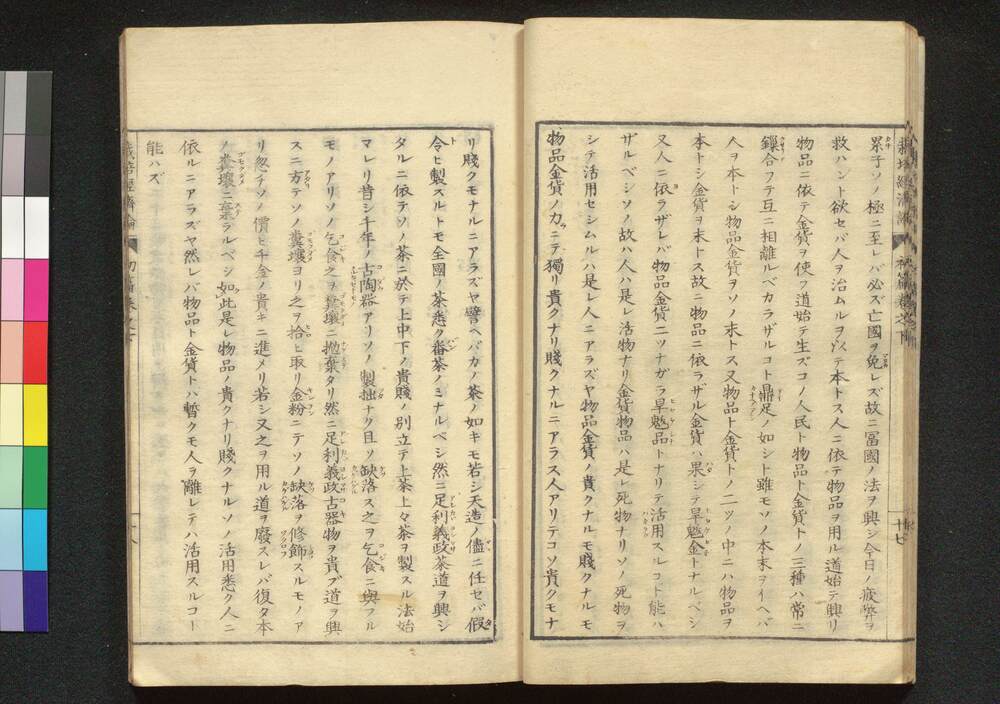 累子ソノ極ニ至レバ必ズ亡國ヲ免レズ故ニ冨國ノ法ヲ興シ今日ノ疲弊ヲ
救ハント欲セバ人ヲ治ムルヲ以テ本トス人ニ依テ物品ヲ用ル道始テ興リ
物品ニ依テ金貨ヲ使フ道始テ生ズコノ人民ト物品ト金貨トノ三種ハ常ニ
鑼合フテ互ニ相離ルベカラザルコト鼎足ノ如シト雖モソノ本末ヲイヘバ
人ヲ本トシ物品金貨ヲソノ末トス又物品ト金貨トノ二ツノ中ニハ物品ヲ
本トシ金貨ヲ末トス故ニ物品ニ依ラザル金貨ハ果シテ旱魃金トナルベシ
又人ニ依ラザレバ物品金貨二ツナガラ旱魃品トナリテ活用スルコト能ハ
ザルベシソノ故ハ人ハ是レ活物ナリ金貨物品ハ是レ死物ナリソノ死物ヲ
シテ活用セシムルハ是レ人ニアラズヤ物品金貨ノ貴クナルモ賤クナルモ
物品金貨ノ力ニテ獨リ貴クナリ賤クナルニアラス人アリテコソ貴クモナ
十七
リ賤クモナルニアラズヤ譬ヘバカノ茶ノ如キモ若シ天造ノ儘ニ任セバ假
令ヒ製スルトモ全國ノ茶悉ク番茶ノミナルベシ然ニ足利義政茶道ヲ興シ
タルニ依テソノ茶ニ於テ上中下ノ貴賤ノ別立テ上茶上々茶ヲ製スル法始
マレリ昔シ千年ノ古陶器アリソノ製拙ナク且ソ缺落ス之ヲ乞食ニ與フル
モノアリソノ乞食之ヲ糞壤ニ抛棄タリ然ニ足利義政古器物ヲ貴ブ道ヲ興
スニ方テソノ糞壤ヨリ之ヲ拾ヒ取リ金粉ニテソノ缺落ヲ修飾スルモノア
リ忽チソノ價ヒ千金ノ貴キニ進メリ若シ又之ヲ用ル道ヲ廢スレバ復タ本
ノ糞壤ニ棄ラルベシ如此是レ物品ノ貴クナリ賤クナルソノ活用悉ク人ニ
依ルニアラズヤ然レバ物品ト金貨トハ暫クモ人ヲ離レテハ活用スルコト
能ハズ
栽培經濟論 初篇卷之下
十八